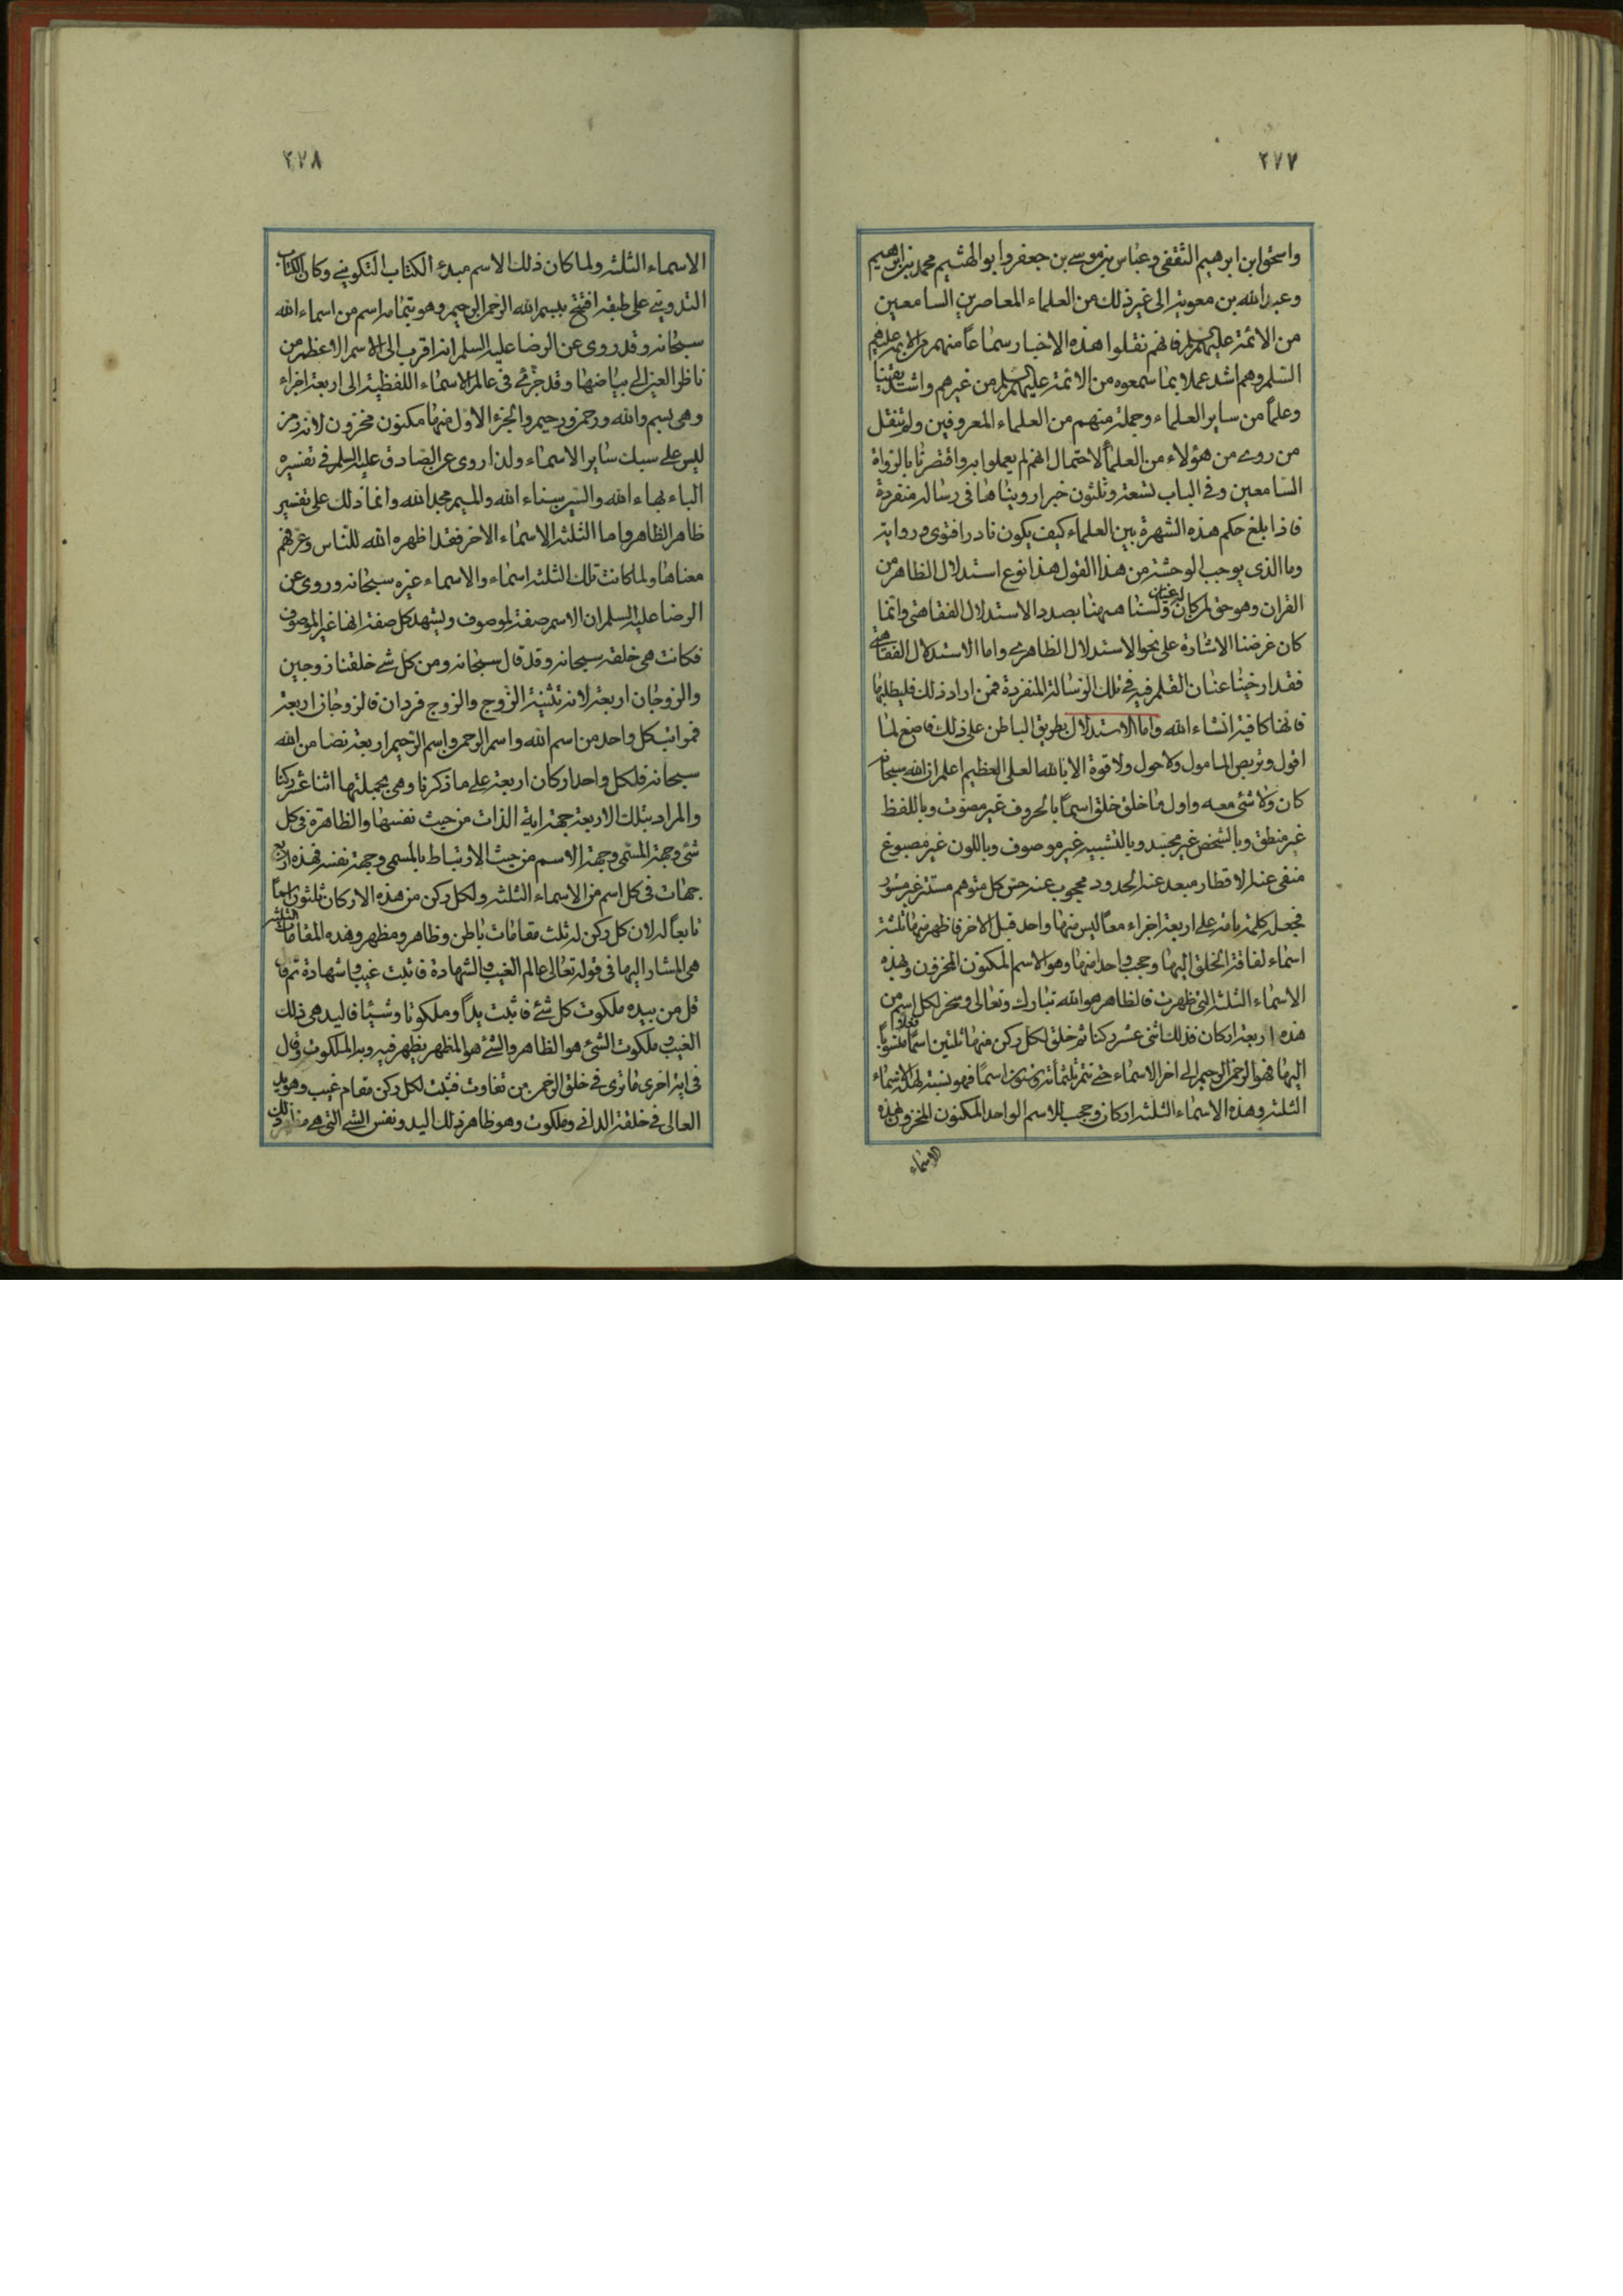 ٢٧٧
واسحق ابن ابرهيم الثقفى وعباس بن موسى بن جعفر وابو الهثيم محمد بن ابرهيم
وعبد الله بن معوية الى غير ذلك من العلماء المعاصرين السامعين
من الائمة عليهم السلم فانهم نقلوا هذه الاخبار سماعاً منهم
السلم وهم اشد عملا بما سمعوه من الائمة عليهم السلم من غيرهم واشد يقينا
وعلماً من ساير العلماء وجملة منهم من العلماء المعروفين ولم ننقل
من روى من هؤلاء من العلماء لاحتمال انهم لم يعملوا به واقتصرنا بالرواة
السامعين وفى الباب تسعة وثلثون خبرا رويناها فى رسالة منفردة
فاذا بلغ حكم هذه الشهرة بين العلماء كيف يكون نادرا فتوى ورواية
وما الذى يوجب الوحشة من هذا القول هذا نوع استدلال الظاهر من
القران وهو حق لمن كان ولسنا ههنا بصدد الاستدلال الفقاهتى وانما
كان غرضنا الاشارة على نحو الاستدلال الظاهرى واما الاستدلال الفقاهتى
فقد ارخينا عنان القلم فيه فى تلك الرسالة المنفردة فمن اراد ذلك فليطلبها
فانها كافية انشاء الله واما الاستدلال بطريق الباطن على ذلك فاضع لما
اقول وتربص المامول ولا حول ولا قوة الا بالله العلى العظيم اعلم ان الله سبحانه
كان ولا شئ معه واول ما خلق خلق اسماً بالحروف غير مصوت وباللفظ
غير منطق وبالشخص غير مجسد وبالتشبيه غير موصوف وباللون غير مصبوغ
منفى عنه الاقطار مبعد عنه الحدود محجوب عنه حس كل متوهم مستتر غير مستور
فجعله كلمة تامة على اربعة اجزاء معاً ليس منها واحد قبل الاخر فاظهر منها ثلثة
اسماء لفاقة الخلق اليها وحجب واحدا منها وهو الاسم المكنون المخزون وبهذه
الاسماء الثلثة التى ظهرت فالظاهر هو الله تبارك وتعالى وسخر لكل اسم من
هذه اربعة اركان فذلك اثنى عشر ركنا ثم خلق لكل ركن منها ثلثين اسماً فعلا منسوباً
اليها فهو الرحمن الرحيم الى اخر الاسماء حتى تتم ثلثمائة وستون اسماً فهو نسبة لهذه الاسماء
الثلثة وهذه الاسماء الثلثة اركان وحجب للاسم الواحد المكنون المخزون بهذه
الاسماء
٢٧٨
الاسماء الثلثة ولما كان ذلك الاسم مبدء الكتاب التكوينى وكان الكتاب
التدوينى على طبقه افتتح ببسم الله الرحمن الرحيم وهو بتمامه اسم من اسماء الله
سبحانه وقد روى عن الرضا عليه السلم انه اقرب الى الاسم الاعظم من
ناظر العين الى بياضها وقد جزئ فى عالم الاسماء اللفظية الى اربعة اجزاء
وهى بسم والله ورحمن ورحيم والجزء الاول منها مكنون مخزون لانه رمز
ليس على سبك ساير الاسماء ولذا روى عن الصادق عليه السلم فى تفسيره
الباء بهاء الله والسين سناء الله والميم مجد الله وانما ذلك على تفسير
ظاهر الظاهر واما الثلثة الاسماء الاخر فقد اظهره الله للناس وعرفهم
معناها ولما كانت تلك الثلثة اسماء والاسماء غيره سبحانه وروى عن
الرضا عليه السلم ان الاسم صفة لموصوف ويشهد كل صفة انها غير الموصوف
فكانت هى خلقه سبحانه وقد قال سبحانه ومن كل شئ خلقنا زوجين
والزوجان اربعة لانه تثنية الزوج والزوج فردان فالزوجان اربعة
فمراتب كل واحد من اسم الله واسم الرحمن واسم الرحيم اربعة نصا من الله
سبحانه فلكل واحد اركان اربعة على ما ذكرنا وهى بجملتها اثنا عشر ركنا
والمراد بتلك الاربعة جهة اية الذات من حيث نفسها والظاهرة فى كل
شئ وجهة المسمى وجهة الاسم من حيث الارتباط بالمسمى وجهة نفسه فهذه اربع
جهات فى كل اسم من الاسماء الثلثة ولكل ركن من هذه الاركان ثلثون اسماً
تابعاً له لان كل ركن له ثلث مقامات باطن وظاهر ومظهر وهذه المقامات الثلثة
هى المشار اليها فى قوله تعالى عالم الغيب والشهادة فاثبت غيبا وشهادة ثم قال
قل من بيده ملكوت كل شئ فاثبت يداً وملكوتا وشيئا فاليد هى ذلك
الغيب وملكوت الشئ هو الظاهر والشئ هو المظهر يظهر فيه وبه الملكوت وقال
فى اية اخرى ما ترى فى خلق الرحمن من تفاوت فثبت لكل ركن مقام غيب وهو يد
العالى فى خلقة الدانى وملكوت وهو ظاهر تلك اليد ونفس الشئ التى هى مظهر تلك